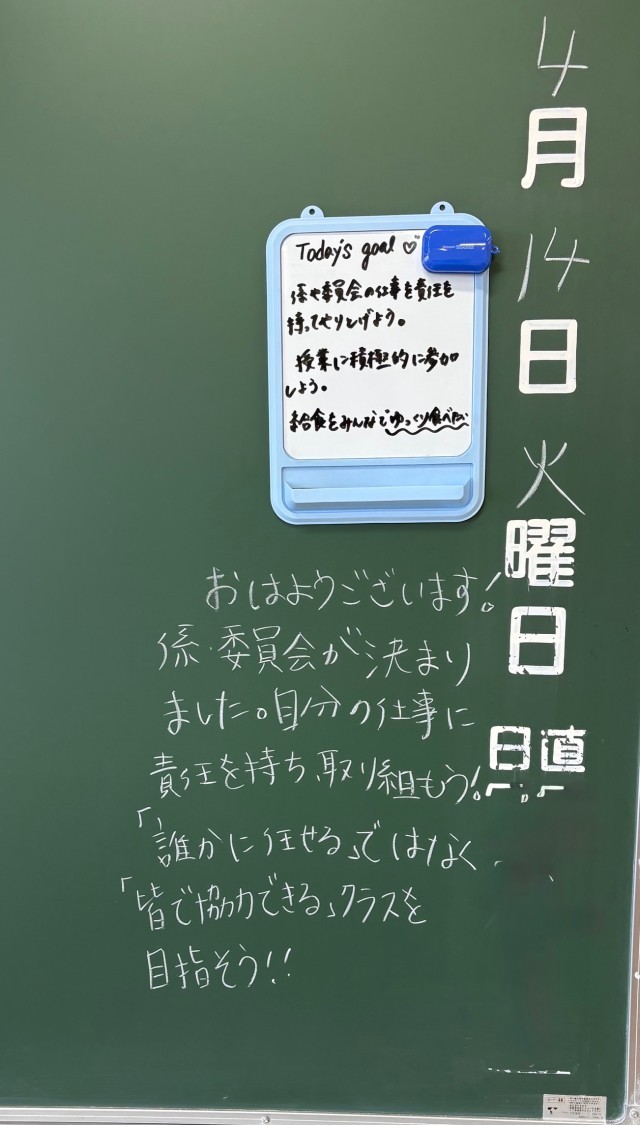 4月14日火曜日
日直
Today's goal ♡
係や委員会の仕事を責任を
持ってやりとげよう。
授業に積極的に参加
しよう。
給食をみんなでゆっくり食べたい
おはようございます!
係・委員会が決まり
ました。自分の仕事に
責任を持ち、取り組もう!
「誰かに任せる」ではなく
「皆で協力できる」クラスを
目指そう!!